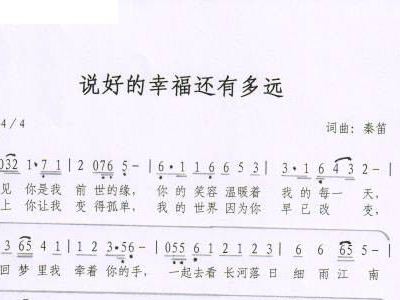 说好的幸福还有多远
4/4
词曲：秦笛
032 1·7 1 | 2 076 5 - | 6·1 1 6 6 5 3 | 3·1 6 4 3 2 - |
见 你是我 前世的缘， 你的笑容温暖着 我的每一天，
上 你让我 变得孤单， 我的世界因为你 早已改变，
3 65 4 1 | 1 2 3·56 - | 055 6 1 2 1 2 3 | 3 65 4
回梦里我 牵着你的手， 一起去看长河落日 细雨江南